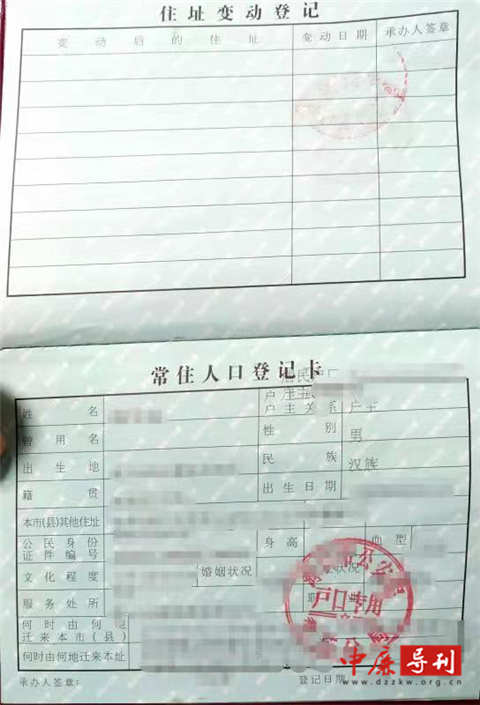 住址变动登记
变动后的住址 变动日期 承办人签章
常住人口登记卡
姓名 户主关系 户主
曾用名 性别 男
出生地 民族 汉族
籍贯 出生日期
本市(县)其他住址
公民身份证件编号 身高 血型
文化程度 婚姻状况 状况
服务处所
户口专用
何时由何地迁来本市(县)
何时由何地迁来本址
承办人签章: 登记日期
中廉导刊
www.dzzkw.org.cn